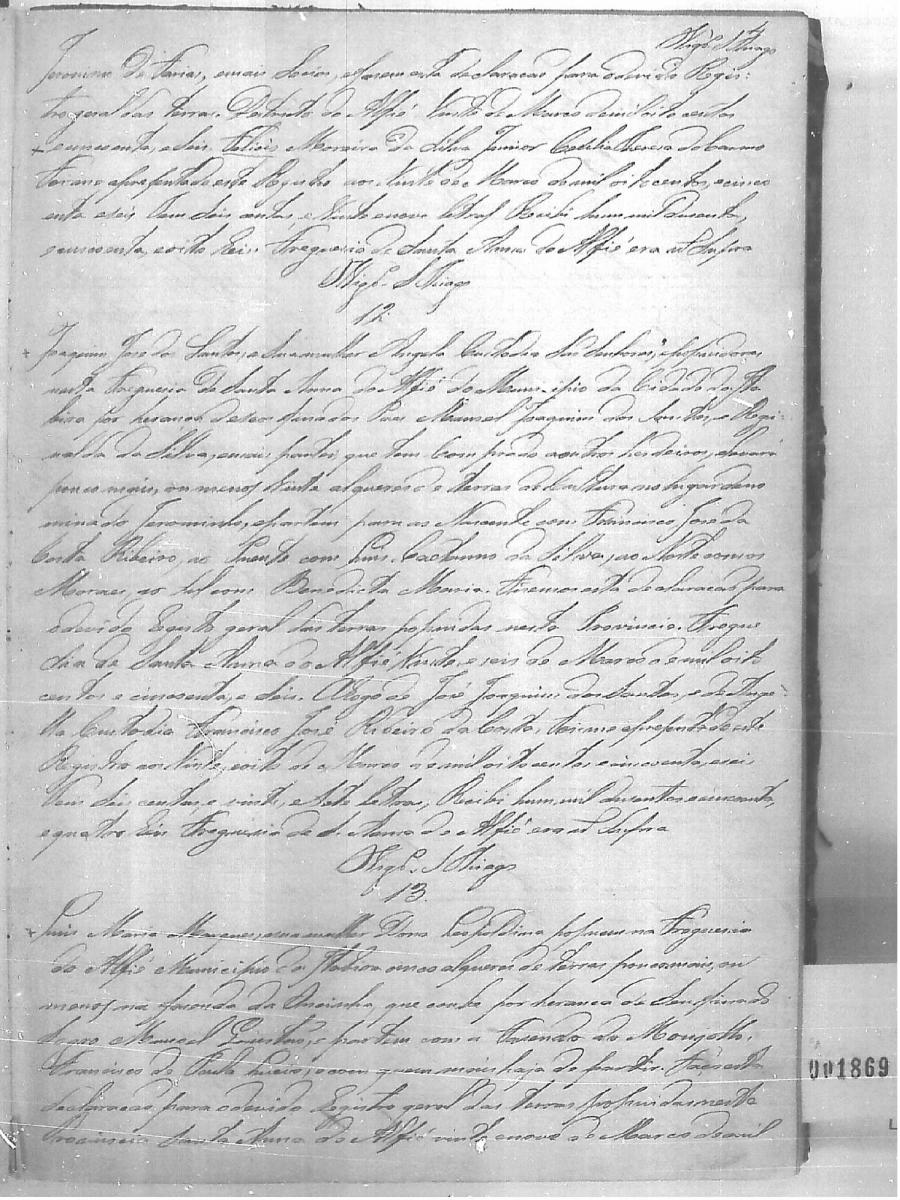 Vigº S Thiago
Jeronimo de Farias, e mais Socios, e faremesta declaracaõ para o devido Regis-
tro geral das terras. Destricto do Alfié Vinte de Marco de mil oito centos
e cincoenta, e seis. Felicis Moreira da Silva Junior Cecilia Theresa do Carmo
Foi me apresentado este Registro aos Vinte de Marco de mil oito centos, e cinco
enta e seis Tem seis centas, e Vinte e nove letras Recibi hum mil Dusentos,
e cincoenta, e oito Reis Freguesia de Santa Anna do Alfié era ut Supra
Vigº S Thiago
12
Joaquim José dos Santos, e sua mulher Angela Custodia saõ Senhores, e possuidores
nesta Freguesia de Santa Anna do Alfié do Municipio da Cidade da Ita
bira por heranca de seos finados Pais Manoel Joaquim dos Santos, e Regi-
nalda da Silva, e mais partes, que tem Comprado a outros herdeiros, levará
pouco mais, ou menos trinta alqueres de terras de Cultura no lugar deno
minado Jerominho, e partem para as Nascente com Francisco José da
Costa Ribeiro, ao Puente com Luis Caetanno da Silva, ao Norte com os
Moraes, ao Sul com Benedicta Maria. Firemos esta declaracaõ para
o devido Egisto geral das terras possuidas nesta Provincia. Fregue
sia de Santa Anna do Alfié Vinte, e seis de Marco de mil oito
centos e cincoenta, e seis. A Rogo de José Joaquim dos Santos, e de Ange
lla Custodia Francisco José Ribeiro da Costa. Foi me apresentado este
Registro aos Vinte, e oito de Marco de mil oito centos e cincoenta, e seis
Tem seis centas, e vinte, e Sete letras, Recibi hum mil dusentos e cincoenta,
e quatro Reis Freguesia de S. Anna do Alfié era ut Supra
Vigº S Thiago
13.
Luis Maria e sua mulher Dona Leopoldina possuem na Freguesia
do Alfié Municipio da Itabira onco alqueres de terras pouco mais, ou
menos na fasenda da que conta por heranca de Seu finado
Sogro Manoel e partem com a Fasenda do Monjollo,
Francisco de Paula e com quem mais haja de partir. Fas esta
declaracaõ para o devido Egistro geral das terras possuidas nesta
Provincia Santa Anna do Alfié vinte e nove de Marco de mil
001869